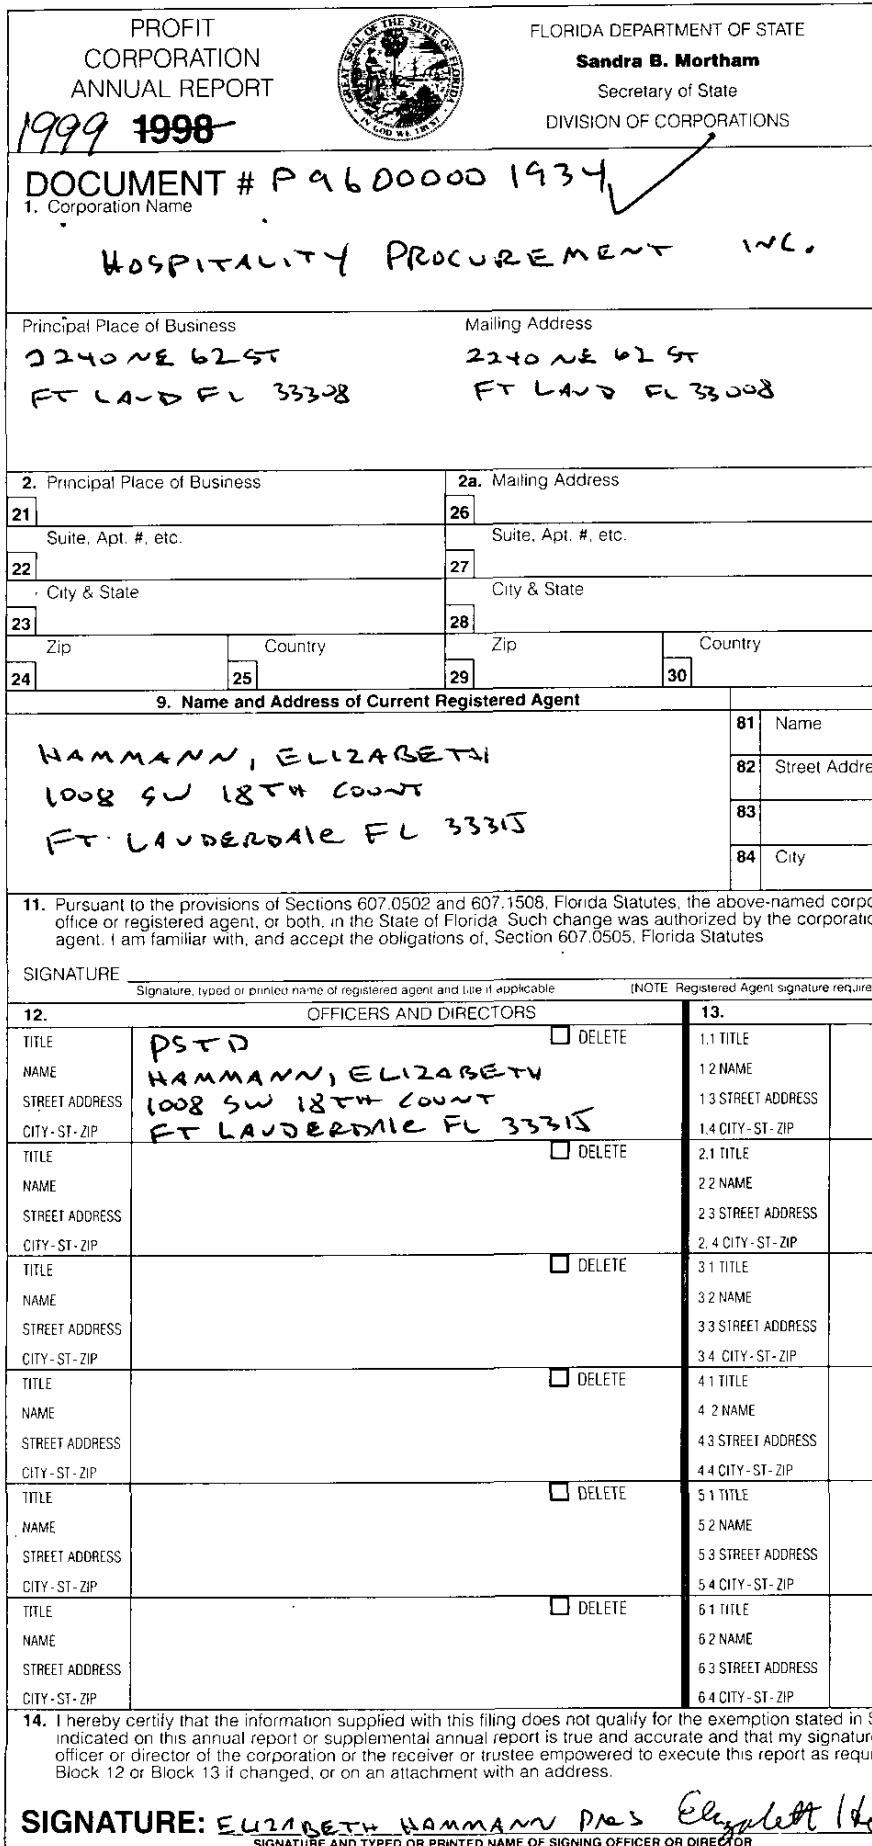 PROFIT
CORPORATION
ANNUAL REPORT
1999 1998
GREAT SEAL OF THE STATE OF FLORIDA
IN GOD WE TRUST
FLORIDA DEPARTMENT OF STATE
Sandra B. Mortham
Secretary of State
DIVISION OF CORPORATIONS
DOCUMENT # P96000001934
1. Corporation Name
HOSPITALITY PROCUREMENT INC.
Principal Place of Business
2240 NE 62 ST
FT LAUD FL 33308
Mailing Address
2240 NE 62 ST
FT LAUD FL 33008
2. Principal Place of Business
2a. Mailing Address
21
26
Suite, Apt. #, etc.
Suite, Apt. #, etc.
22
27
City & State
City & State
23
28
Zip
Country
Zip
Country
24
25
29
30
9. Name and Address of Current Registered Agent
HAMMANN, ELIZABETH
1008 SW 18TH COUNT
FT. LAUDERDALE FL 33315
81 Name
82 Street Addre
83
84 City
11. Pursuant to the provisions of Sections 607.0502 and 607.1508, Florida Statutes, the above-named corpo
office or registered agent, or both, in the State of Florida. Such change was authorized by the corporatio
agent. I am familiar with, and accept the obligations of, Section 607.0505, Florida Statutes
SIGNATURE
Signature, typed or printed name of registered agent and title if applicable
(NOTE Registered Agent signature require
12. OFFICERS AND DIRECTORS
13.
TITLE PSTD DELETE
NAME HAMMANN, ELIZABETH
STREET ADDRESS 1008 SW 18TH COUNT
CITY-ST-ZIP FT LAUDERDALE FL 33315
1.1 TITLE
1 2 NAME
1 3 STREET ADDRESS
1.4 CITY-ST-ZIP
TITLE DELETE
NAME
STREET ADDRESS
CITY-ST-ZIP
2.1 TITLE
2 2 NAME
2 3 STREET ADDRESS
2.4 CITY-ST-ZIP
TITLE DELETE
NAME
STREET ADDRESS
CITY-ST-ZIP
3 1 TITLE
3 2 NAME
3 3 STREET ADDRESS
3 4 CITY-ST-ZIP
TITLE DELETE
NAME
STREET ADDRESS
CITY-ST-ZIP
4 1 TITLE
4 2 NAME
4 3 STREET ADDRESS
4 4 CITY-ST-ZIP
TITLE DELETE
NAME
STREET ADDRESS
CITY-ST-ZIP
5 1 TITLE
5 2 NAME
5 3 STREET ADDRESS
5 4 CITY-ST-ZIP
TITLE DELETE
NAME
STREET ADDRESS
CITY-ST-ZIP
6 1 TITLE
6 2 NAME
6 3 STREET ADDRESS
6 4 CITY-ST-ZIP
14. I hereby certify that the information supplied with this filing does not qualify for the exemption stated in S
indicated on this annual report or supplemental annual report is true and accurate and that my signature
officer or director of the corporation or the receiver or trustee empowered to execute this report as requi
Block 12 or Block 13 if changed, or on an attachment with an address.
SIGNATURE: ELIZABETH HAMMANN PRES Elizabeth Ha
SIGNATURE AND TYPED OR PRINTED NAME OF SIGNING OFFICER OR DIRECTOR